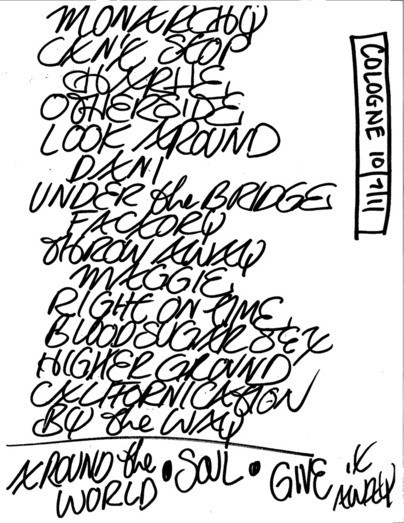 MONARCHY
CAN'T STOP
CHARLIE
OTHERSIDE
LOOK AROUND
DANI
UNDER the BRIDGE
FACTORY
THROW AWAY
MAGGIE
RIGHT ON TIME
BLOOD SUGAR SEX
HIGHER GROUND
CALIFORNICATION
BY the WAY
AROUND the WORLD • SOUL • GIVE it AWAY
COLOGNE 10/7/11